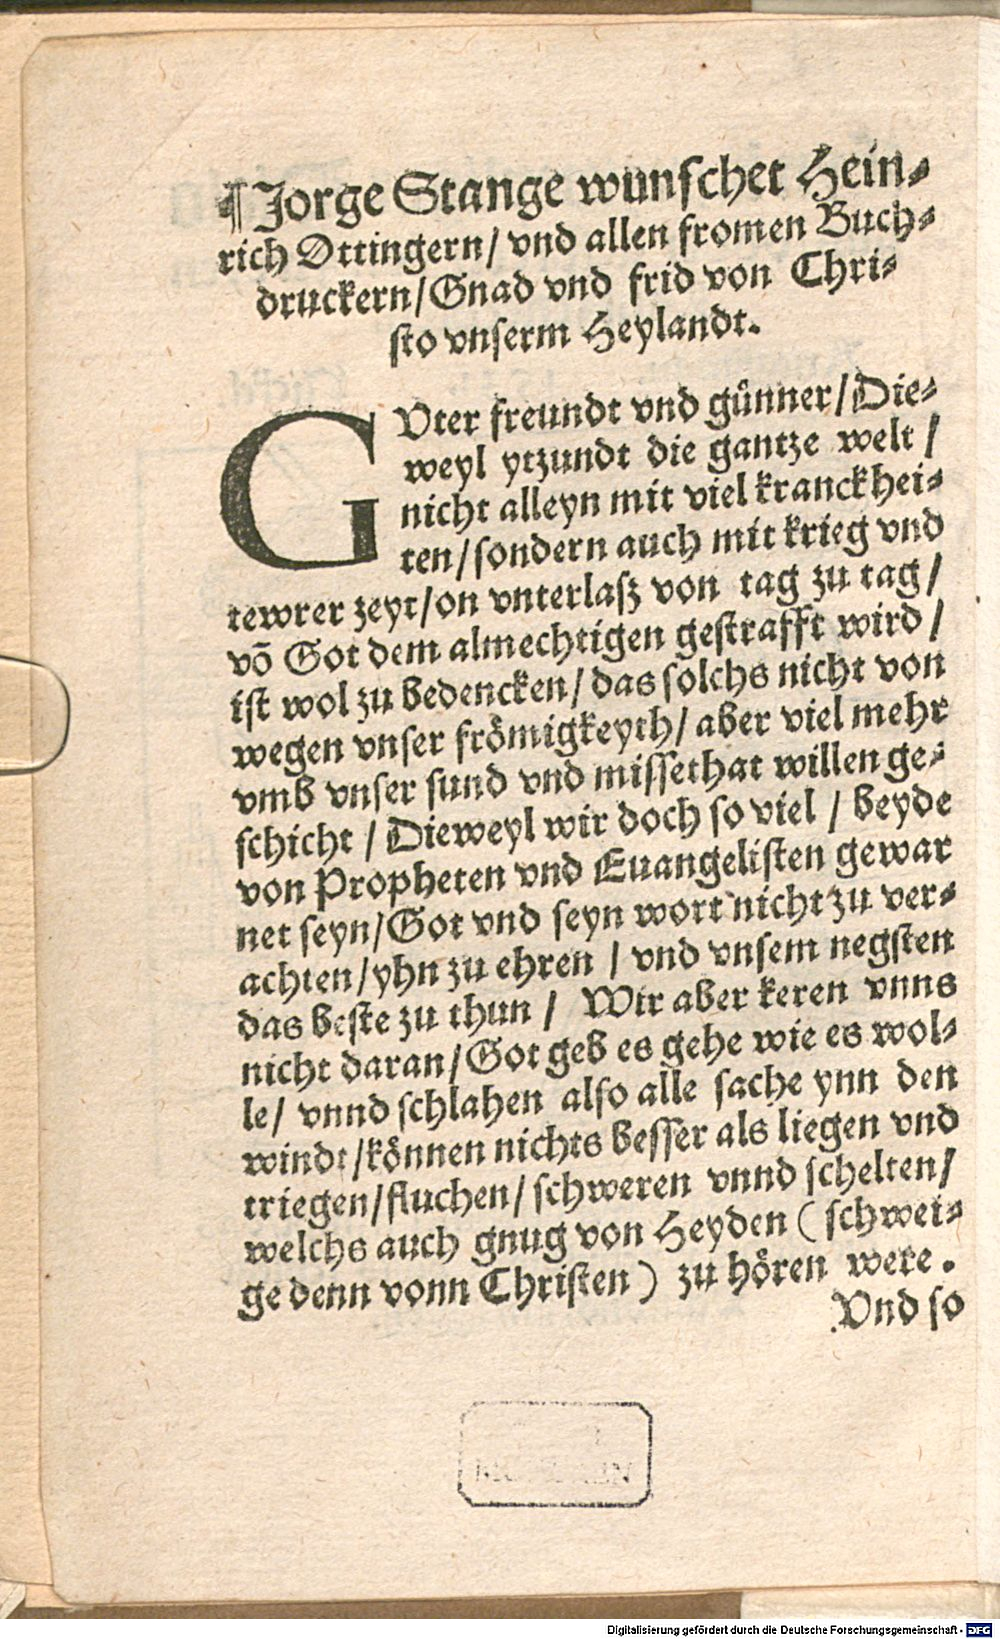 ¶ Jorge Stange wunſchet Hein⸗
rich Ottingern/ vnd allen fromen Buch⸗
druckern/ Gnad vnd frid von Chri⸗
ſto vnſerm Heylandt.
GVter freundt vnd günner/ Die⸗
weyl ytzundt die gantze welt /
nicht alleyn mit viel kranckhei⸗
ten/ ſondern auch mit krieg vnd
tewrer zeyt/ on vnterlaſz von tag zu tag/
võ Got dem almechtigen geſtrafft wird /
iſt wol zu bedencken/ das ſolchs nicht von
wegen vnſer frömigkeyth/ aber viel mehr
vmb vnſer ſund vnd miſſethat willen ge⸗
ſchicht / Dieweyl wir doch ſo viel / beyde
von Propheten vnd Euangeliſten gewar
net ſeyn/ Got vnd ſeyn wort nicht zu ver⸗
achten/ yhn zu ehren / vnd vnſem negſten
das beſte zu thun / Wir aber keren vnns
nicht daran/ Got geb es gehe wie es wol⸗
le/ vnnd ſchlahen alſo alle ſache ynn den
windt/ können nichts beſſer als liegen vnd
triegen/ fluchen/ ſchweren vnnd ſchelten/
welchs auch gnug von Heyden ( ſchwei⸗
ge denn vonn Chriſten ) zu hören were .
Vnd ſo
Digitalisierung gefördert durch die Deutsche Forschungsgemeinschaft - DFG